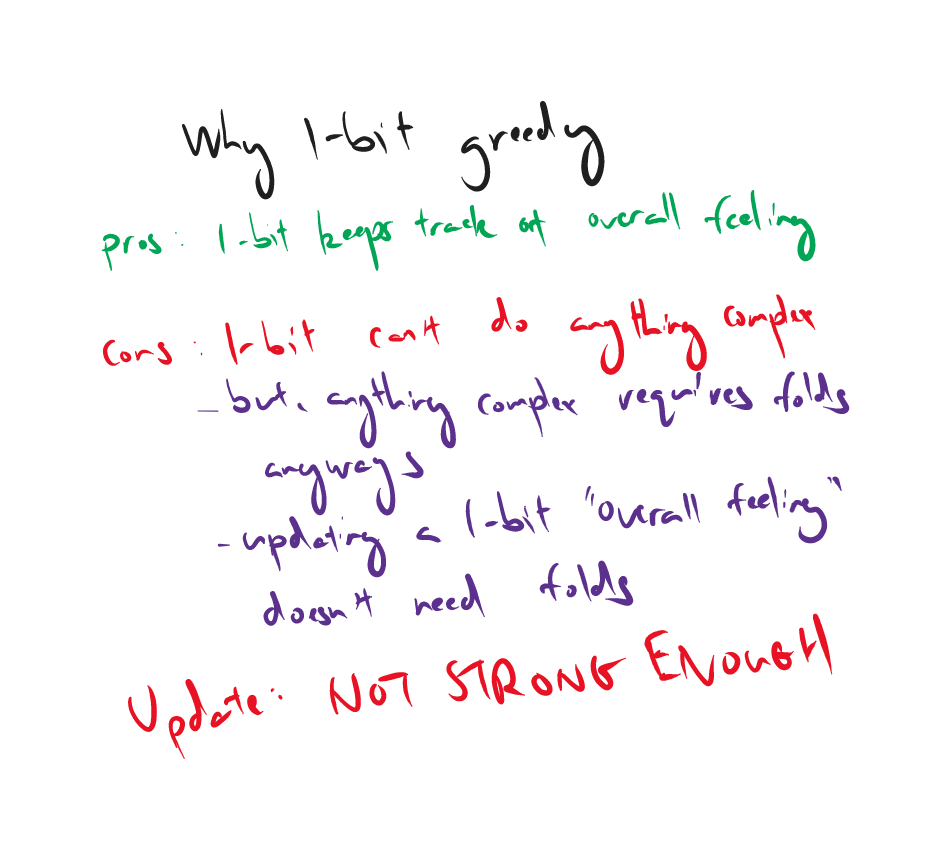 Why 1-bit greedy
pros: 1-bit keeps track of overall feeling
cons: 1-bit can't do anything complex
- but, anything complex requires folds
anyways
- updating a 1-bit "overall feeling"
doesn't need folds
Update: NOT STRONG ENOUGH